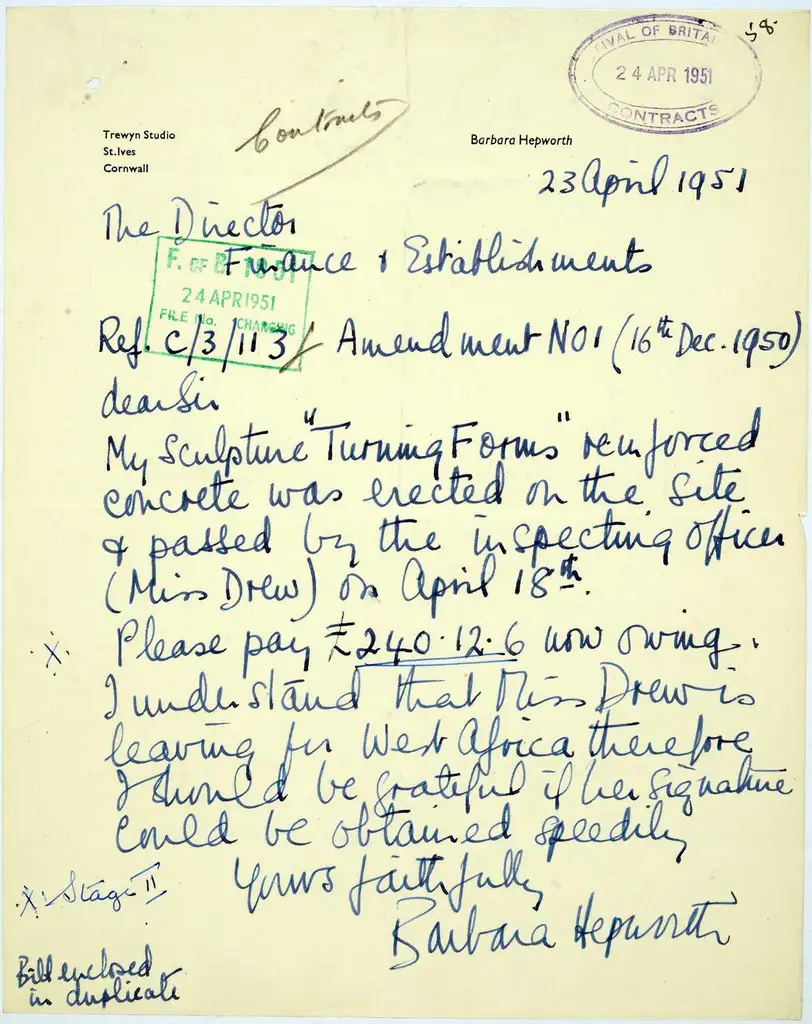 58.
IVAL OF BRITAI
24 APR 1951
CONTRACTS
Contracts
Trewyn Studio
St.Ives
Cornwall
Barbara Hepworth
23 April 1951
The Director
Finance & Establishments
F. OF B. 1951
24 APR 1951
FILE No. CHARGING
Ref. C/3/113/ Amendment NO1 (16th Dec. 1950)
dear Sir
My Sculpture "Turning Forms" reinforced
concrete was erected on the site
& passed by the inspecting officer
(Miss Drew) on April 18th.
X. Please pay £240.12.6 now owing.
I understand that Miss Drew is
leaving for West Africa therefore
I should be grateful if her signature
could be obtained speedily
Yours faithfully
Barbara Hepworth
X. Stage II
Bill enclosed
in duplicate